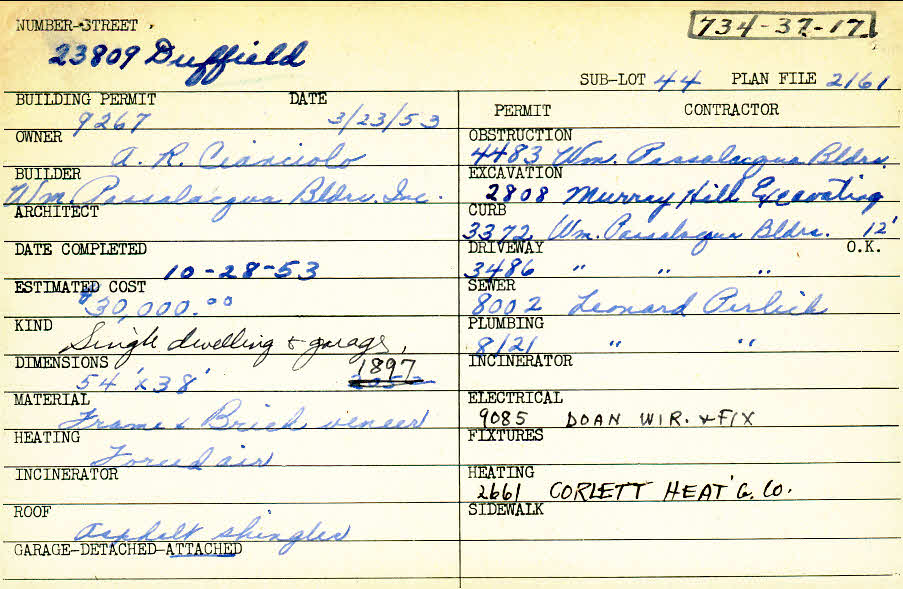 NUMBER-STREET
734-37-17
23809 Duffield
SUB-LOT 44 PLAN FILE 2161
BUILDING PERMIT DATE
9267 3/23/53
OWNER
A. R. Cianciolo
BUILDER
Wm. Passalacqua Bldrs. Inc.
ARCHITECT
DATE COMPLETED
10-28-53
ESTIMATED COST
$30,000.00
KIND
Single dwelling & garage,
DIMENSIONS
54' x 38' 1897
MATERIAL
Frame & Brick veneer
HEATING
Forced air
INCINERATOR
ROOF
Asphalt shingles
GARAGE-DETACHED-ATTACHED
PERMIT CONTRACTOR
OBSTRUCTION
4483 Wm. Passalacqua Bldrs.
EXCAVATION
2808 Murray Hill Excavating
CURB
3372 Wm. Passalaqua Bldrs. 12'
DRIVEWAY O.K.
3486 " " "
SEWER
8002 Leonard Perlick
PLUMBING
8121 " "
INCINERATOR
ELECTRICAL
9085 DOAN WIR. & FIX
FIXTURES
HEATING
2661 CORLETT HEAT'G. CO.
SIDEWALK